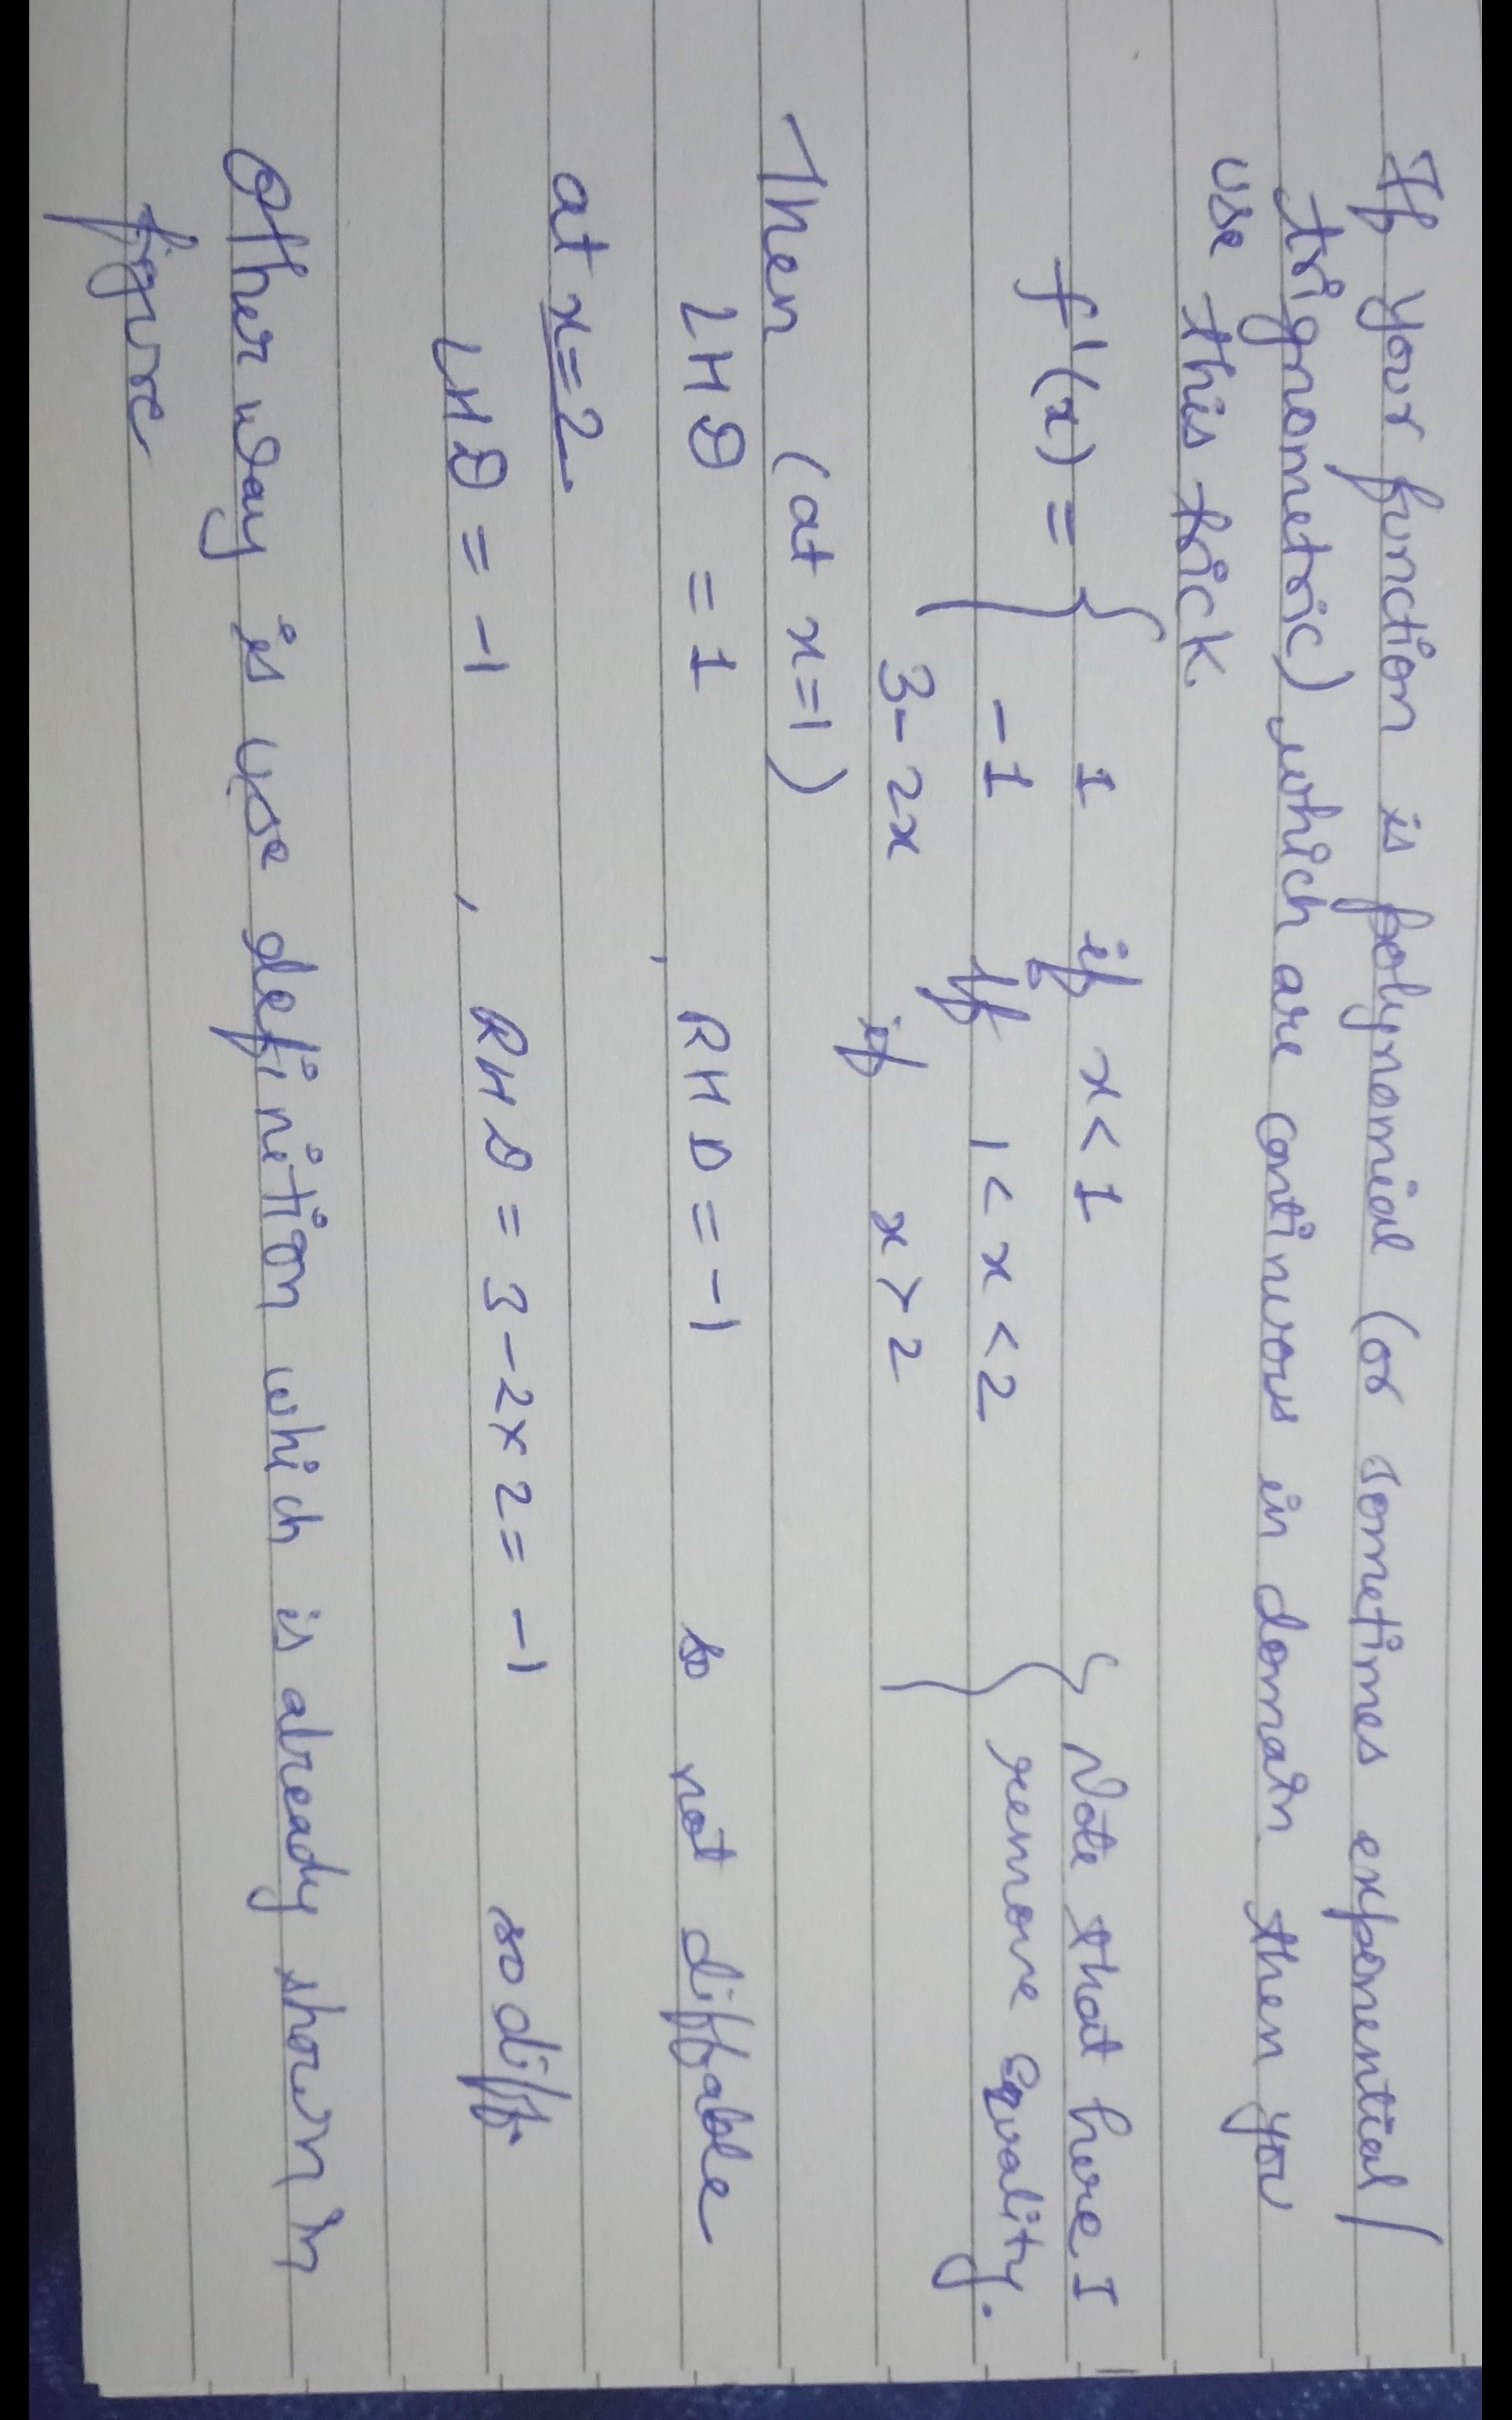 If your function is polynomial (or sometimes exponential/
trignometric) which are continuous in domain then you
use this trick.
f'(x) = { 1 if x < 1 } Note that here I
-1 if 1 < x < 2 remove equality.
3-2x if x > 2
Then (at x=1)
LHD = 1 , RHD = -1 so not diffable
at x=2
LHD = -1 , RHD = 3-2×2 = -1 so diff.
Other way is use definition which is already shown in
figure